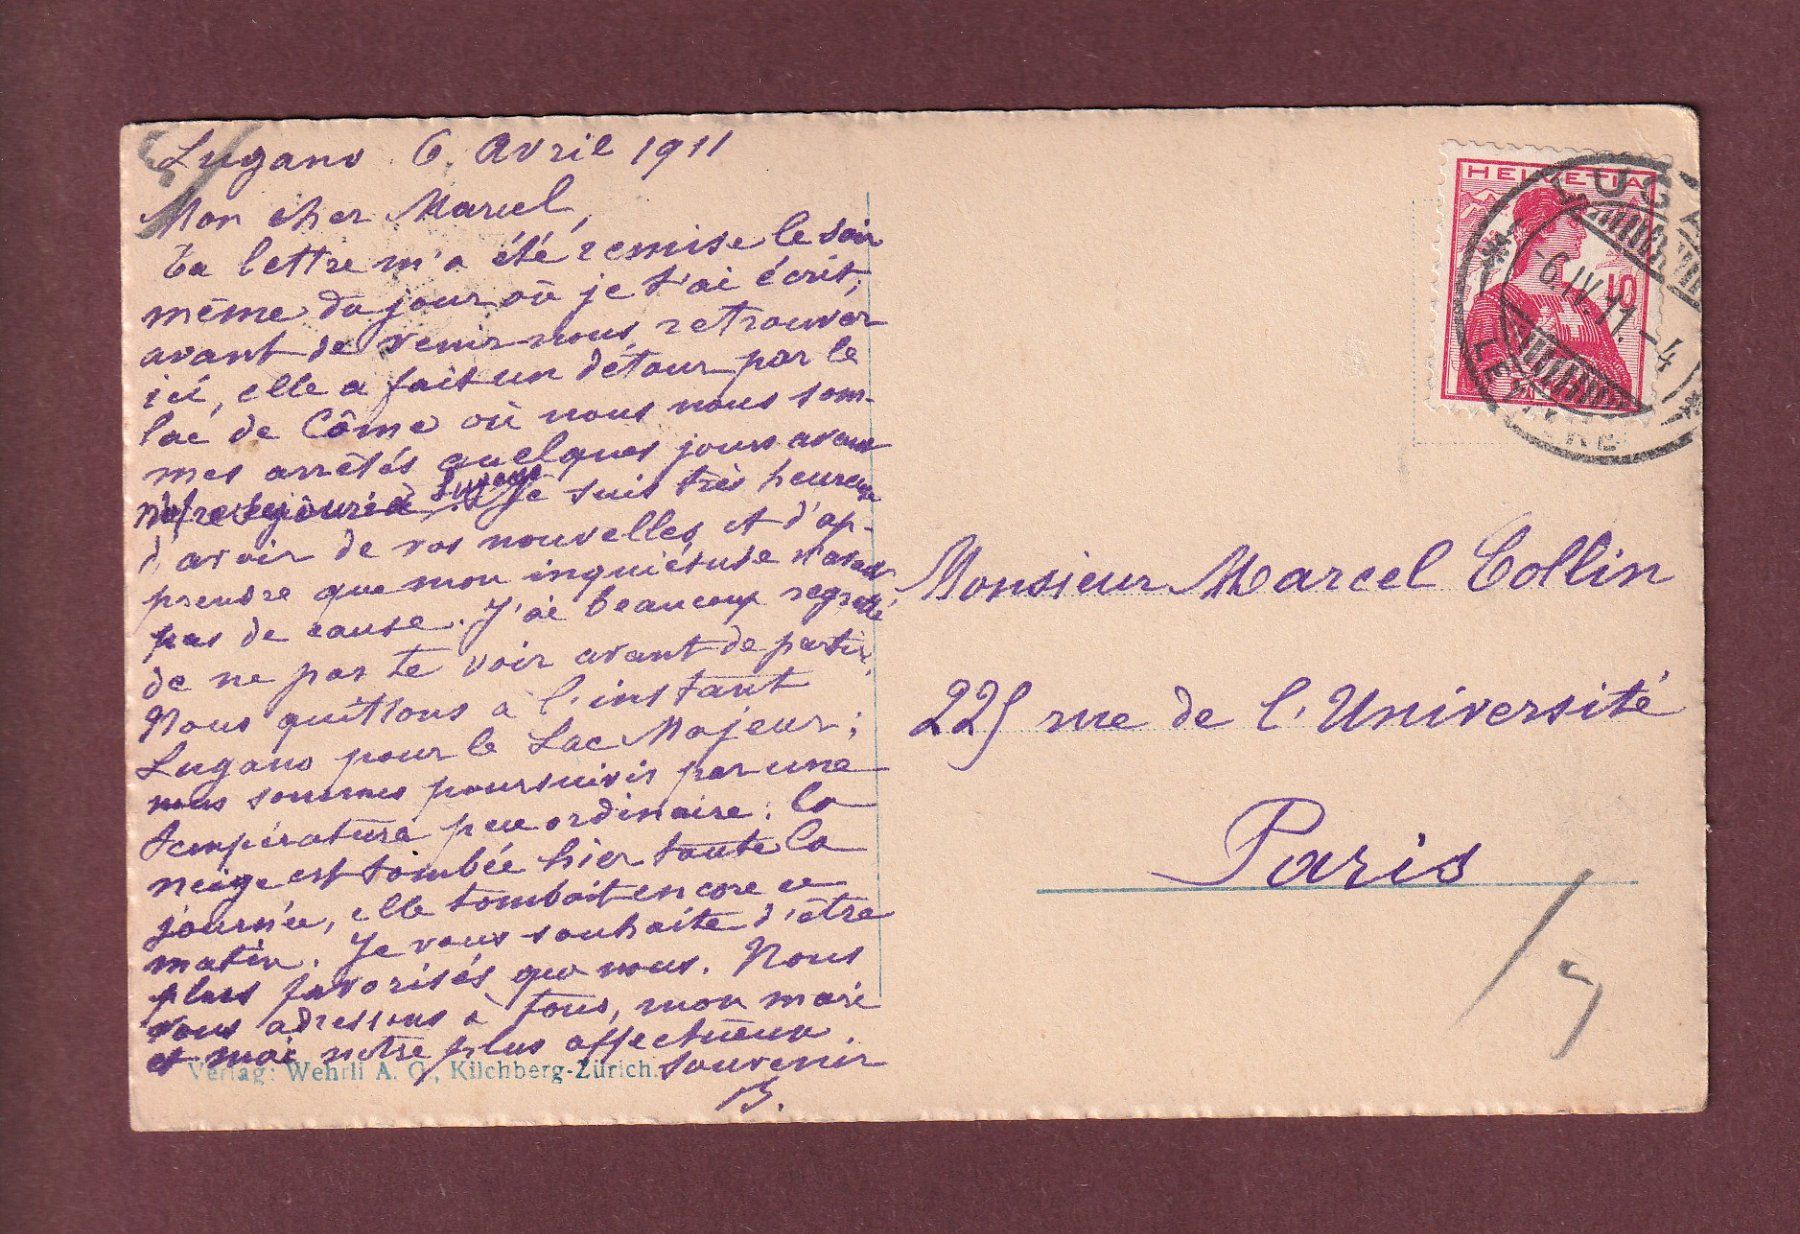 Lugano 6. Avril 1911
Mon cher Marcel,
Ta lettre m'a été remise le soir
même du jour où je t'ai écrit;
avant de venir nous retrouver
ici, elle a fait un détour par le
lac de Côme où nous nous som-
mes arrêtés quelques jours avant
notre séjour à Lugano. Je suis très heureuse
d'avoir de vos nouvelles et d'ap-
prendre que mon inquiétude n'avait
pas de cause. J'ai beaucoup regretté
de ne pas te voir avant de partir.
Nous quittons à l'instant
Lugano pour le Lac Majeur;
nous sommes poursuivis par une
température peu ordinaire: la
neige est tombée hier toute la
journée, elle tombait encore ce
matin. Je vous souhaite d'être
plus favorisés que nous. Nous
vous adressons à tous, mon mari
et moi notre plus affectueux
souvenir
B.
Verlag: Wehrli A. G., Kilchberg-Zürich.
HELVETIA
10
LUGA
-6.IV.11.-4
Monsieur Marcel Collin
225 rue de l'Université
Paris